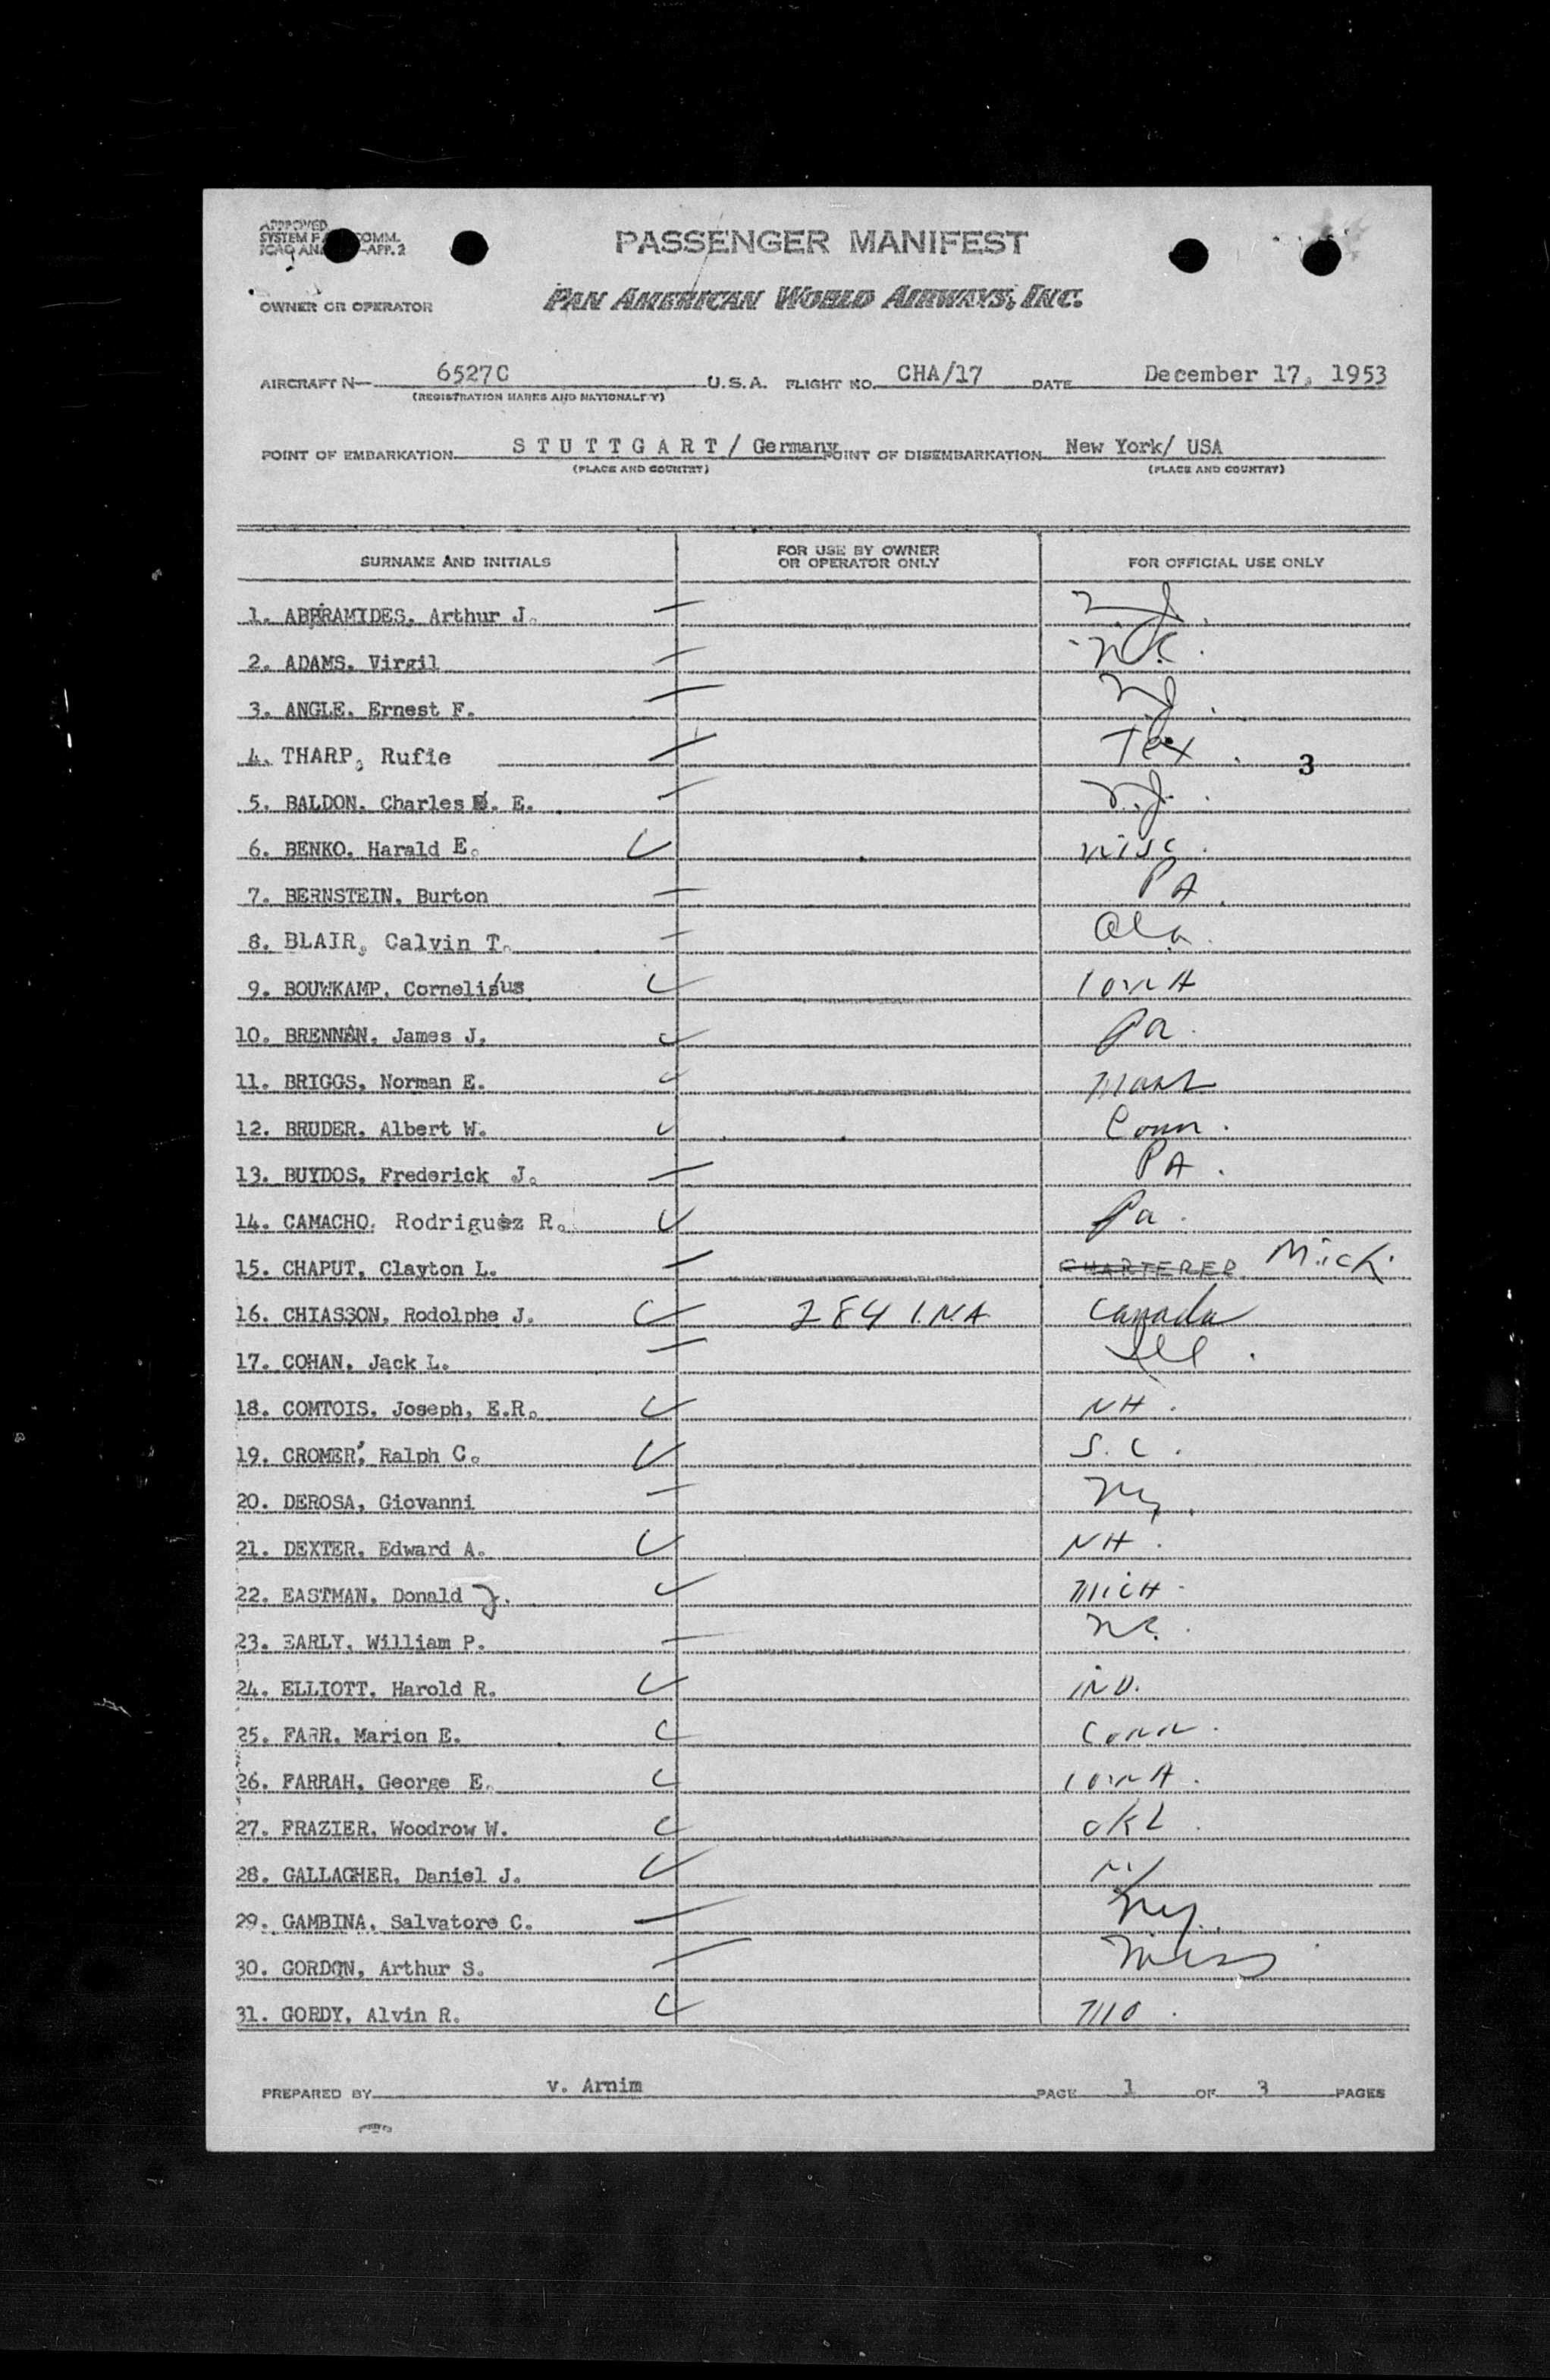 APPROVED
SYSTEM F COMM.
ICAO AN -APP. 2
PASSENGER MANIFEST
OWNER OR OPERATOR PAN AMERICAN WORLD AIRWAYS, INC.
AIRCRAFT N— 6527C U.S.A. FLIGHT NO. CHA/17 DATE December 17, 1953
(REGISTRATION MARKS AND NATIONALITY)
POINT OF EMBARKATION STUTTGART/ Germany POINT OF DISEMBARKATION New York/ USA
(PLACE AND COUNTRY) (PLACE AND COUNTRY)
SURNAME AND INITIALS FOR USE BY OWNER OR OPERATOR ONLY FOR OFFICIAL USE ONLY
1. ABRAMIDES, Arthur J. N.J.
2. ADAMS, Virgil N.C.
3. ANGLE, Ernest F. N.J.
4. THARP, Rufie Tex. 3
5. BALDON, Charles E. N.J.
6. BENKO, Harald E. Wisc.
7. BERNSTEIN, Burton PA.
8. BLAIR, Calvin T. Ala.
9. BOUWKAMP, Cornelius IOWA
10. BRENNAN, James J. Pa.
11. BRIGGS, Norman E. Mass
12. BRUDER, Albert W. Conn.
13. BUYDOS, Frederick J. PA.
14. CAMACHO, Rodriguez R. Pa.
15. CHAPUT, Clayton L. CHARTERER Mich.
16. CHIASSON, Rodolphe J. 284 I.N.A Canada
17. COHAN, Jack L. Ill.
18. COMTOIS, Joseph, E.R. NH.
19. CROMER, Ralph C. S.C.
20. DEROSA, Giovanni Ny.
21. DEXTER, Edward A. NH.
22. EASTMAN, Donald J. MICH.
23. EARLY, William P. NC.
24. ELLIOTT, Harold R. IND.
25. FARR, Marion E. Conn.
26. FARRAH, George E. IOWA.
27. FRAZIER, Woodrow W. OKL.
28. GALLAGHER, Daniel J. NY
29. GAMBINA, Salvatore C. Ny.
30. GORDON, Arthur S. Mass.
31. GORDY, Alvin R. MO.
PREPARED BY v. Arnim PAGE 1 OF 3 PAGES